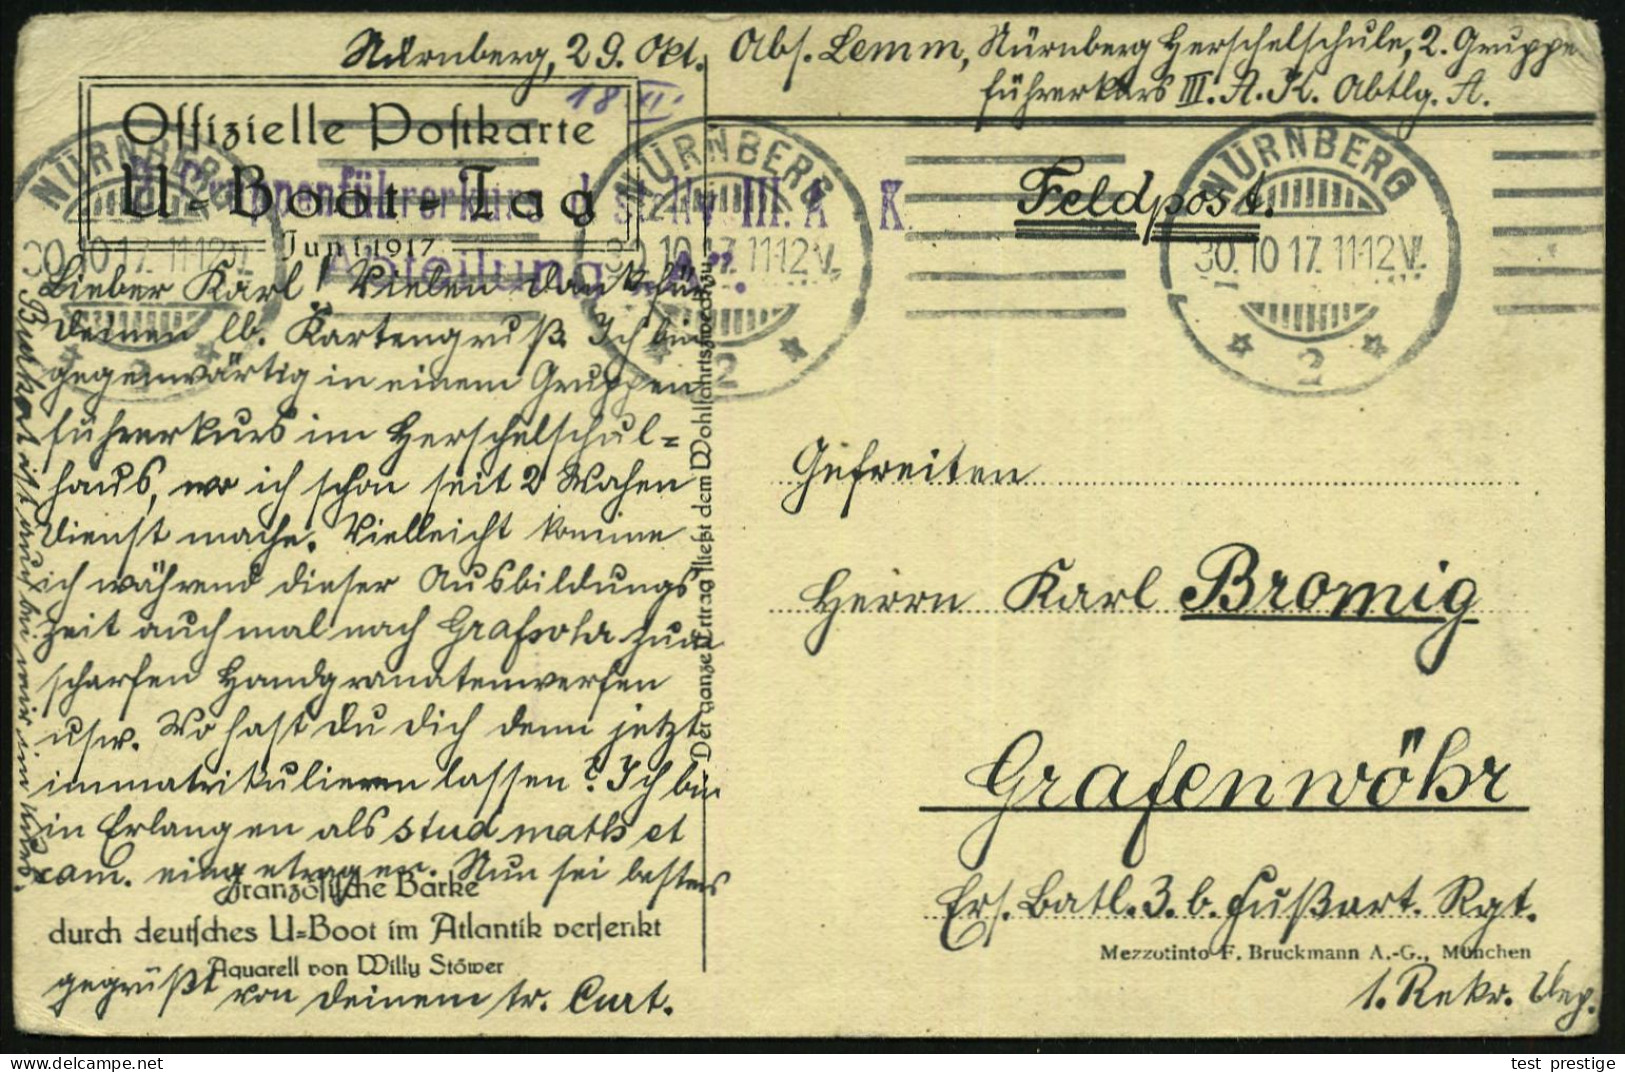 Nürnberg, 29. Okt.
18 II.
Offizielle Postkarte
U-Boot-Tag
Juni 1917
NÜRNBERG
30.10.17. 11-12 V.
2
NÜRNBERG
30.10.17. 11-12 V.
2
NÜRNBERG
30.10.17. 11-12 V.
2
Gruppenführerkurs d. stellv. III. A. K.
Abteilung „A".
Lieber Karl! Vielen Dank für
Deinen lb. Kartengruß. Ich bin
gegenwärtig in einem Gruppen
führerkurs im Herschelschul-
haus, wo ich schon seit 2 Wochen
Dienst mache. Vielleicht komme
ich während dieser Ausbildungs
zeit auch mal nach Grafwöhr zum
scharfen Handgranatenwerfen
usw. Wo hast Du Dich denn jetzt
immatrikulieren lassen? Ich bin
in Erlangen als stud math et
cam. eingetragen. Nun sei bestens
gegrüßt von Deinem tr. Curt.
ist mit bei mir im Kurs.
Französische Barke
durch deutsches U-Boot im Atlantik versenkt
Aquarell von Willy Stöwer
Der ganze Ertrag fließt dem Wohlfahrtszweck zu.
Abs. Lemm, Nürnberg Herschelschule, 2. Gruppe
führerkurs III. A. K. Abtlg. A.
Feldpost.
Gefreiten
Herrn Karl Bromig
Grafenwöhr
Ers. Batl. 3. b. Fußart. Rgt.
Mezzotinto F. Bruckmann A.-G., München
1. Rekr. Dep.
test prestige